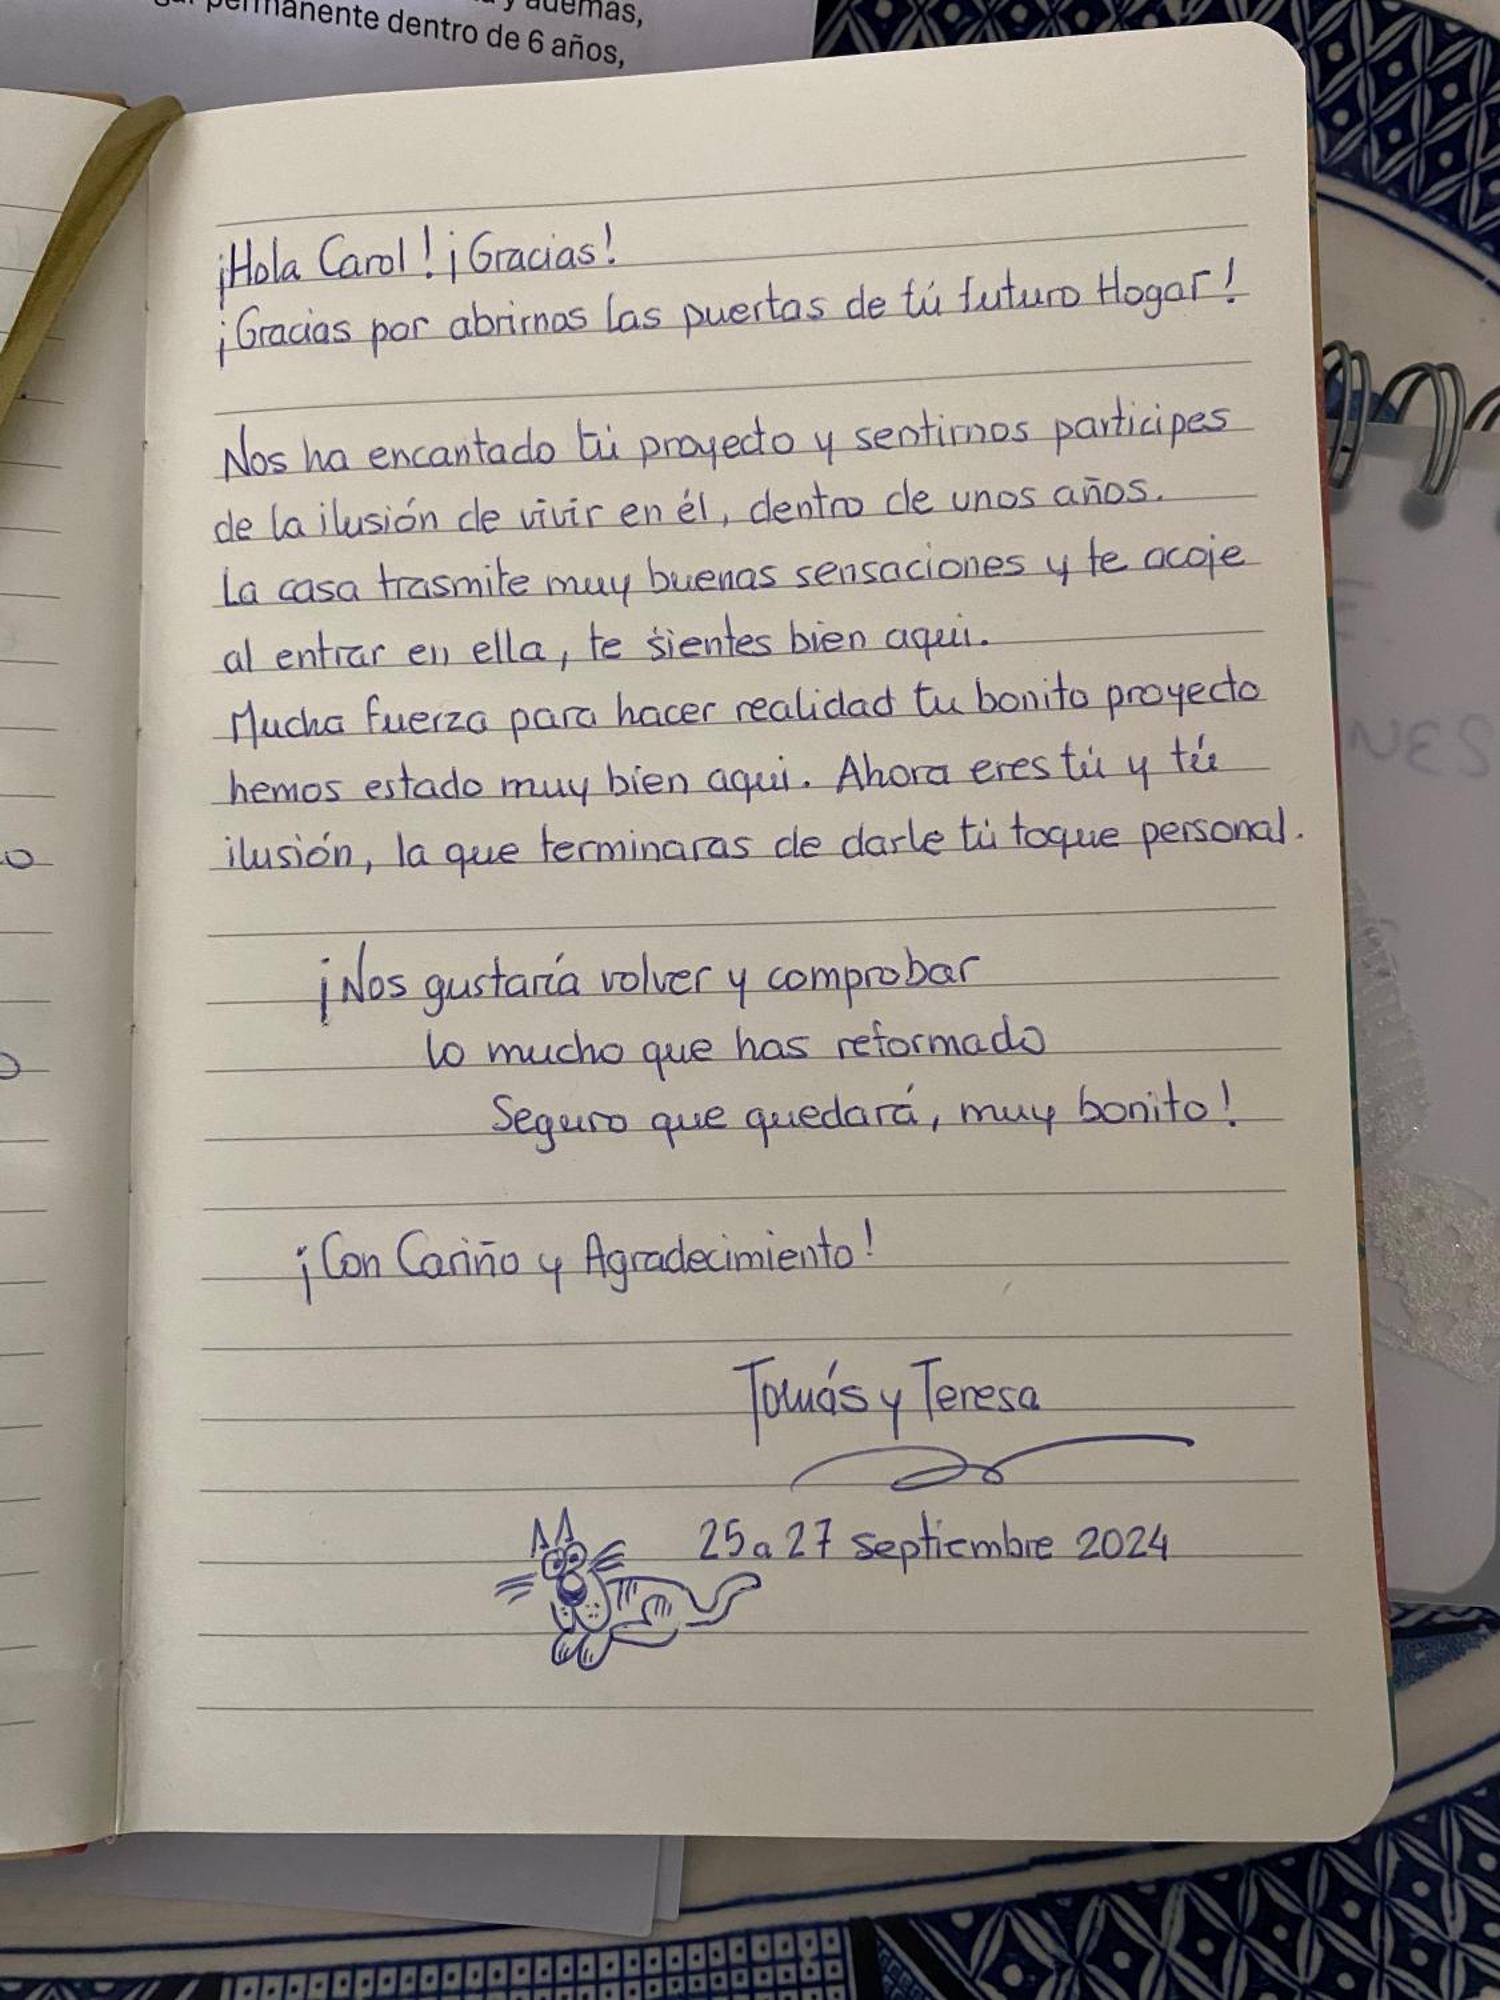 y además,
permanente dentro de 6 años,
¡Hola Carol! ¡Gracias!
¡Gracias por abrirnos las puertas de tú futuro Hogar!
Nos ha encantado tú proyecto y sentirnos participes
de la ilusión de vivir en él, dentro de unos años.
La casa trasmite muy buenas sensaciones y te acoje
al entrar en ella, te sientes bien aqui.
Mucha fuerza para hacer realidad tu bonito proyecto
hemos estado muy bien aqui. Ahora eres tú y tú
ilusión, la que terminaras de darle tú toque personal.
¡Nos gustaría volver y comprobar
lo mucho que has reformado
Seguro que quedará, muy bonito!
¡Con Cariño y Agradecimiento!
Tomás y Teresa
25 a 27 septiembre 2024